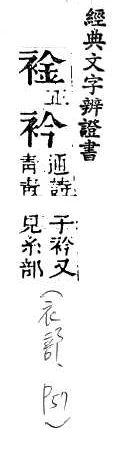 經典文字辨證書
䘳正
衿通詩青青子衿又見糸部
(衣部, P57)